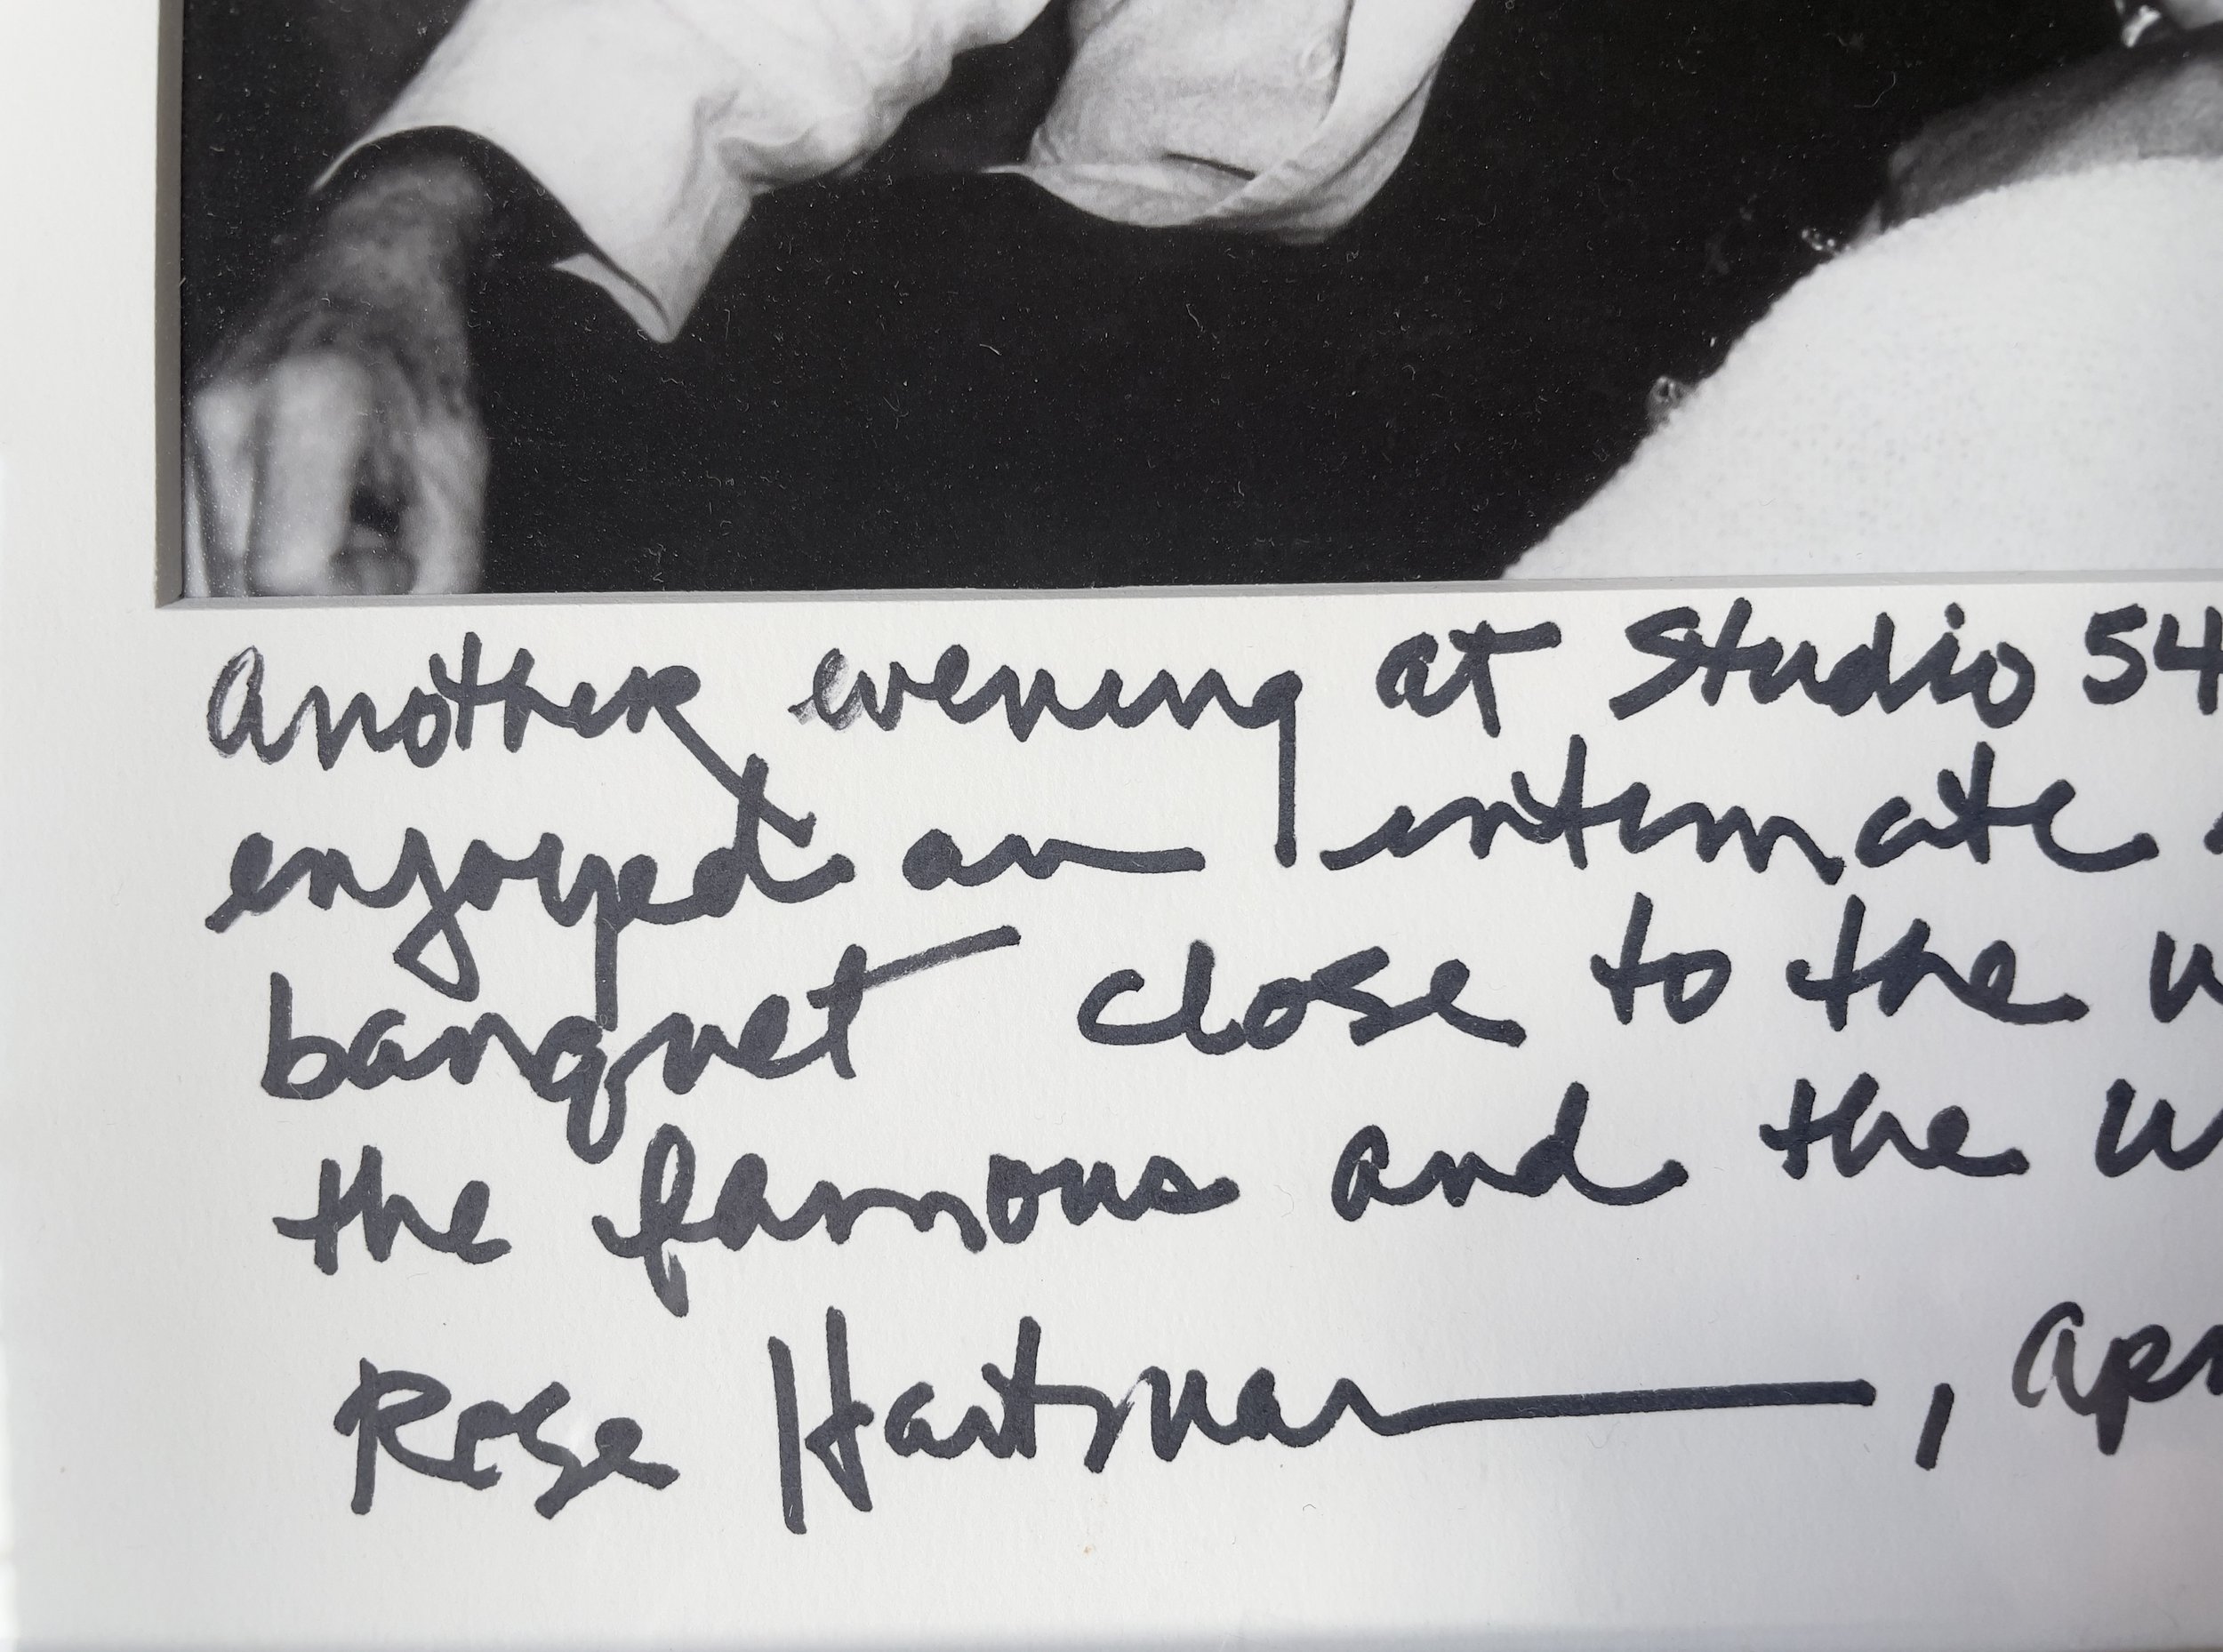 Another evening at Studio 54
enjoyed an intimate
banquet close to the
the famous and the
Rose Hartman, Apr